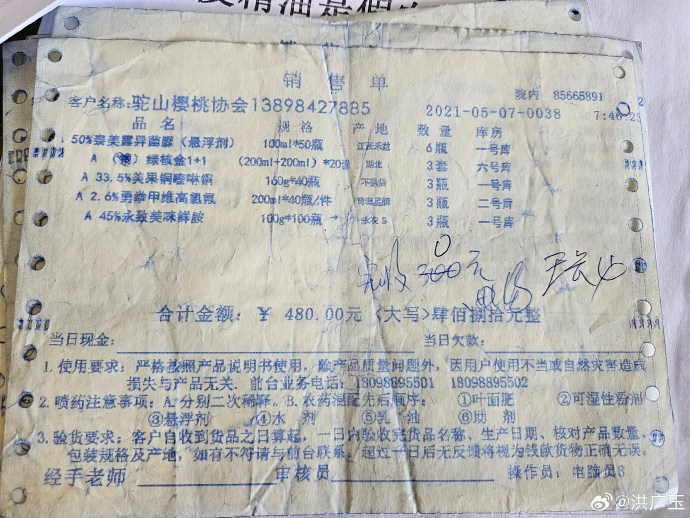 销售单
院内 85665891
客户名称:驼山樱桃协会13898427885 2021-05-07-0038 7:46:23
品名 规格 产地 数量 库房
50%泰美露异菌脲（悬浮剂） 100ml*50瓶 6瓶 一号库
A 绿核金1+1 (200ml+200ml)*20 湖北 3套 六号库
A 33.5%美果铜喹啉铜 160g*40瓶 3瓶 一号库
A 2.6%勇拳甲维高氯氟 200ml*40瓶/件 3瓶 二号库
A 45%永致美咪鲜胺 100g*100瓶 永农S 3瓶 一号库
300元
合计金额: ¥ 480.00元 〈大写〉肆佰捌拾元整
当日现金: 当日欠款:
1.使用要求: 严格按照产品说明书使用，除产品质量问题外，因用户使用不当或自然灾害造成
损失与产品无关。前台业务电话: 18098895501 18098895502
2.喷药注意事项:A.分别二次稀释。B.农药混配先后顺序: ①叶面肥 ②可湿性粉剂
③悬浮剂 ④水剂 ⑤乳油 ⑥助剂
3.验货要求: 客户自收到货品之日算起，一日内验收完货品名称、生产日期、核对产品数量、
包装规格及产地，如有不符请与前台联系。超过一日后无反馈将视为钱款货物正确无误。
经手老师 审核员 操作员: 电脑员8
@洪广玉